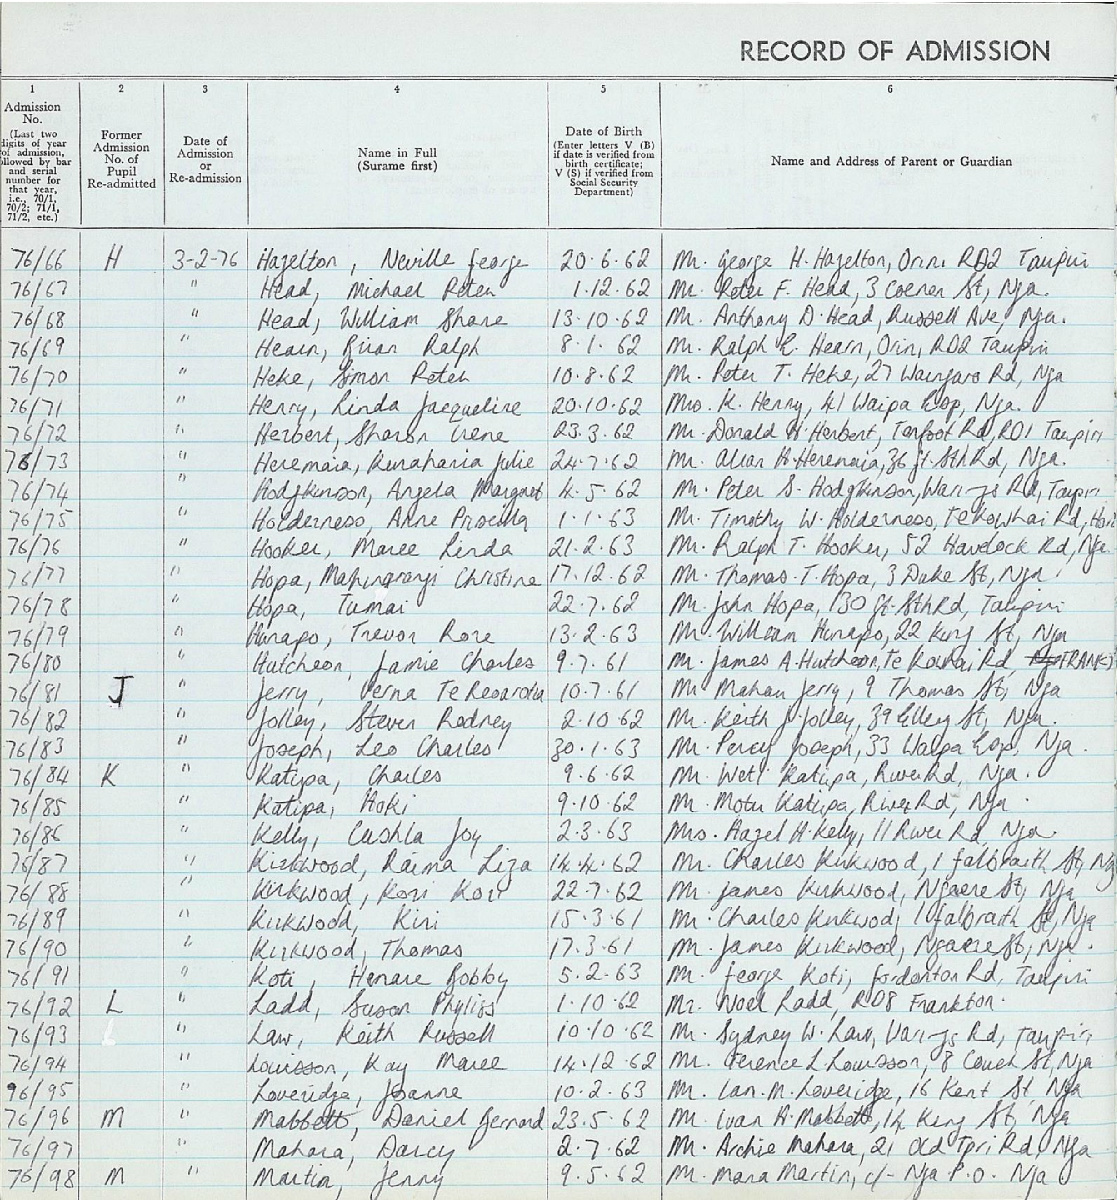 RECORD OF ADMISSION
1 2 3 4 5 6
Admission No. (Last two digits of year of admission, followed by bar and serial number for that year, i.e., 70/1, 70/2; 71/1, 71/2, etc.)
Former Admission No. of Pupil Re-admitted
Date of Admission or Re-admission
Name in Full (Surame first)
Date of Birth (Enter letters V (B) if date is verified from birth certificate; V (S) if verified from Social Security Department)
Name and Address of Parent or Guardian
76/66 H 3-2-76 Hazelton, Neville George 20·6·62 Mr. George H. Hazelton, Orini RD2 Taupiri
76/67 " Head, Michael Peter 1·12·62 Mr. Peter F. Head, 3 Coener St, Nga.
76/68 " Head, William Shane 13·10·62 Mr. Anthony D. Head, Russell Ave, Nga.
76/69 " Hearn, Brian Ralph 8·1·62 Mr. Ralph E. Hearn, Orini, RD2 Taupiri
76/70 " Heke, Simon Peter 10·8·62 Mr. Peter T. Heke, 27 Waingaro Rd, Nga
76/71 " Henry, Linda Jacqueline 20·10·62 Mrs. K. Henry, 41 Waipa Esp, Nga.
76/72 " Herbert, Sharon Irene 23.3.62 Mr. Donald H. Herbert, Rd, RD1 Taupiri
76/73 " Heremaia, Julie 24·7·62 Mr. Allan H. Heremaia, 36 Gt. Sth Rd, Nga.
76/74 " Hodgkinson, Angela Margaret 4.5.62 Mr. Peter S. Hodgkinson, Rd, Taupiri
76/75 " Holderness, Anne Priscilla 1·1·63 Mr. Timothy W. Holderness, Te Kowhai Rd, Ham
76/76 " Hooker, Maree Linda 21·2·63 Mr. Ralph T. Hooker, 52 Havelock Rd, Nga.
76/77 " Hopa, Mahinarangi Christine 17.12.62 Mr. Thomas T. Hopa, 3 Duke St, Nga.
76/78 " Hopa, Tumai 22·7·62 Mr. John Hopa, 130 Gt. Sth Rd, Taupiri
76/79 " Hurapo, Trevor Rore 13·2·63 Mr. William Hurapo, 22 King St, Nga
76/80 " Hutcheon, Jamie Charles 9·7·61 Mr. James A. Hutcheon, Te Kowhai Rd, (FRANK)
76/81 J " Jerry, Verna 10·7·61 Mr Mahau Jerry, 9 Thomas St, Nga
76/82 " Jolley, Steven Rodney 2·10·62 Mr. Keith J. Jolley, 39 Ellery St, Nga.
76/83 " Joseph, Leo Charles 30·1·63 Mr. Percy Joseph, 33 Waipa Esp, Nga.
76/84 K " Katipa, Charles 9·6·62 Mr. Weti Katipa, River Rd, Nga.
76/85 " Katipa, Hoki 9·10·62 Mr. Motu Katipa, River Rd, Nga.
76/86 " Kelly, Cushla Joy 2·3·63 Mrs. Hazel H. Kelly, 11 River Rd, Nga.
76/87 " Kirkwood, Raima Liza 14·4·62 Mr. Charles Kirkwood, 1 Galbraith St, Ng
76/88 " Kirkwood, Kori Kori 22·7·62 Mr. James Kirkwood, Ngaere St, Nga
76/89 " Kirkwood, Kiri 15·3·61 Mr. Charles Kirkwood, 1 Galbraith St, Nga
76/90 " Kirkwood, Thomas 17·3·61 Mr. James Kirkwood, Ngaere St, Nga.
76/91 " Koti, Henare Bobby 5·2·63 Mr. George Koti, Gordonton Rd, Taupiri
76/92 L " Ladd, Susan Phyliss 1·10·62 Mr. Noel Ladd, RD8 Frankton.
76/93 " Law, Keith Russell 10·10·62 Mr. Sydney W. Law, Rd, Taupiri
76/94 " Louisson, Kay Maree 14·12·62 Mr. Terence L Louisson, 8 Court St, Nga
96/95 " Loveridge, Joanne 10·2·63 Mr. Ian M. Loveridge, 16 Kent St Nga
76/96 M " Mabbett, Daniel Bernard 23.5.62 Mr. Ivan H. Mabbett, 14 King St, Nga
76/97 " Mahara, Darcy 2·7·62 Mr. Archie Mahara, 21 Old Tpri Rd, Nga
76/98 M " Martin, Jenny 9·5·62 Mr. Mana Martin, c/- Nga P.O. Nga